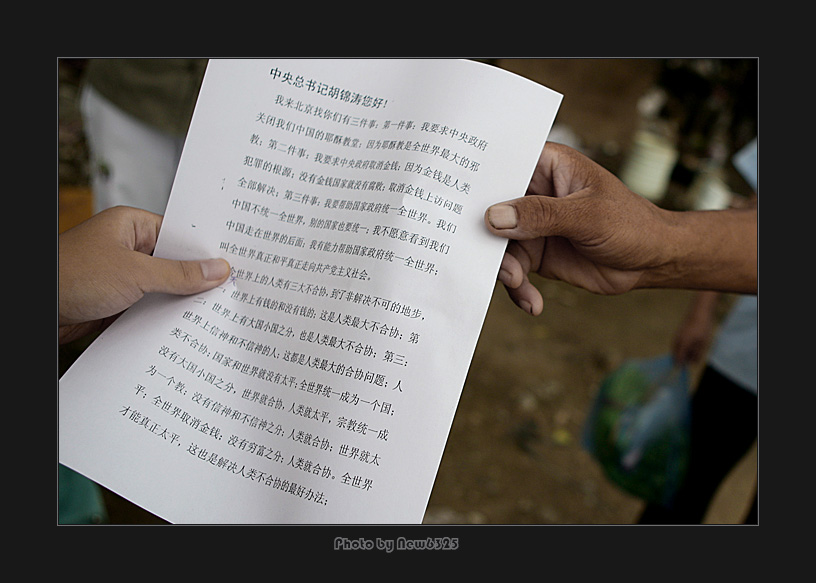 中央总书记胡锦涛您好!
我来北京找你们有三件事：第一件事：我要求中央政府
关闭我们中国的耶酥教堂；因为耶酥教是全世界最大的邪
教；第二件事；我要求中央政府取消金钱；因为金钱是人类
犯罪的根源；没有金钱国家就没有腐败；取消金钱上访问题
全部解决；第三件事；我要帮助国家政府统一全世界。我们
中国不统一全世界，别的国家也要统一；我不愿意看到我们
中国走在世界的后面；我有能力帮助国家政府统一全世界；
叫全世界真正和平真正走向共产党主义社会。
全世界上的人类有三大不合协，到了非解决不可的地步，
世界上有钱的和没有钱的；这是人类最大不合协；第
二；世界上有大国小国之分，也是人类最大不合协；第三；
世界上信神和不信神的人；这都是人类最大的合协问题；人
类不合协；国家和世界就没有太平；全世界统一成为一个国；
没有大国小国之分，世界就合协，人类就太平，宗教统一成
为一个教；没有信神和不信神之分；人类就合协；世界就太
平；全世界取消金钱；没有穷富之分；人类就合协。全世界
才能真正太平，这也是解决人类不合协的最好办法；
Photo by New6325